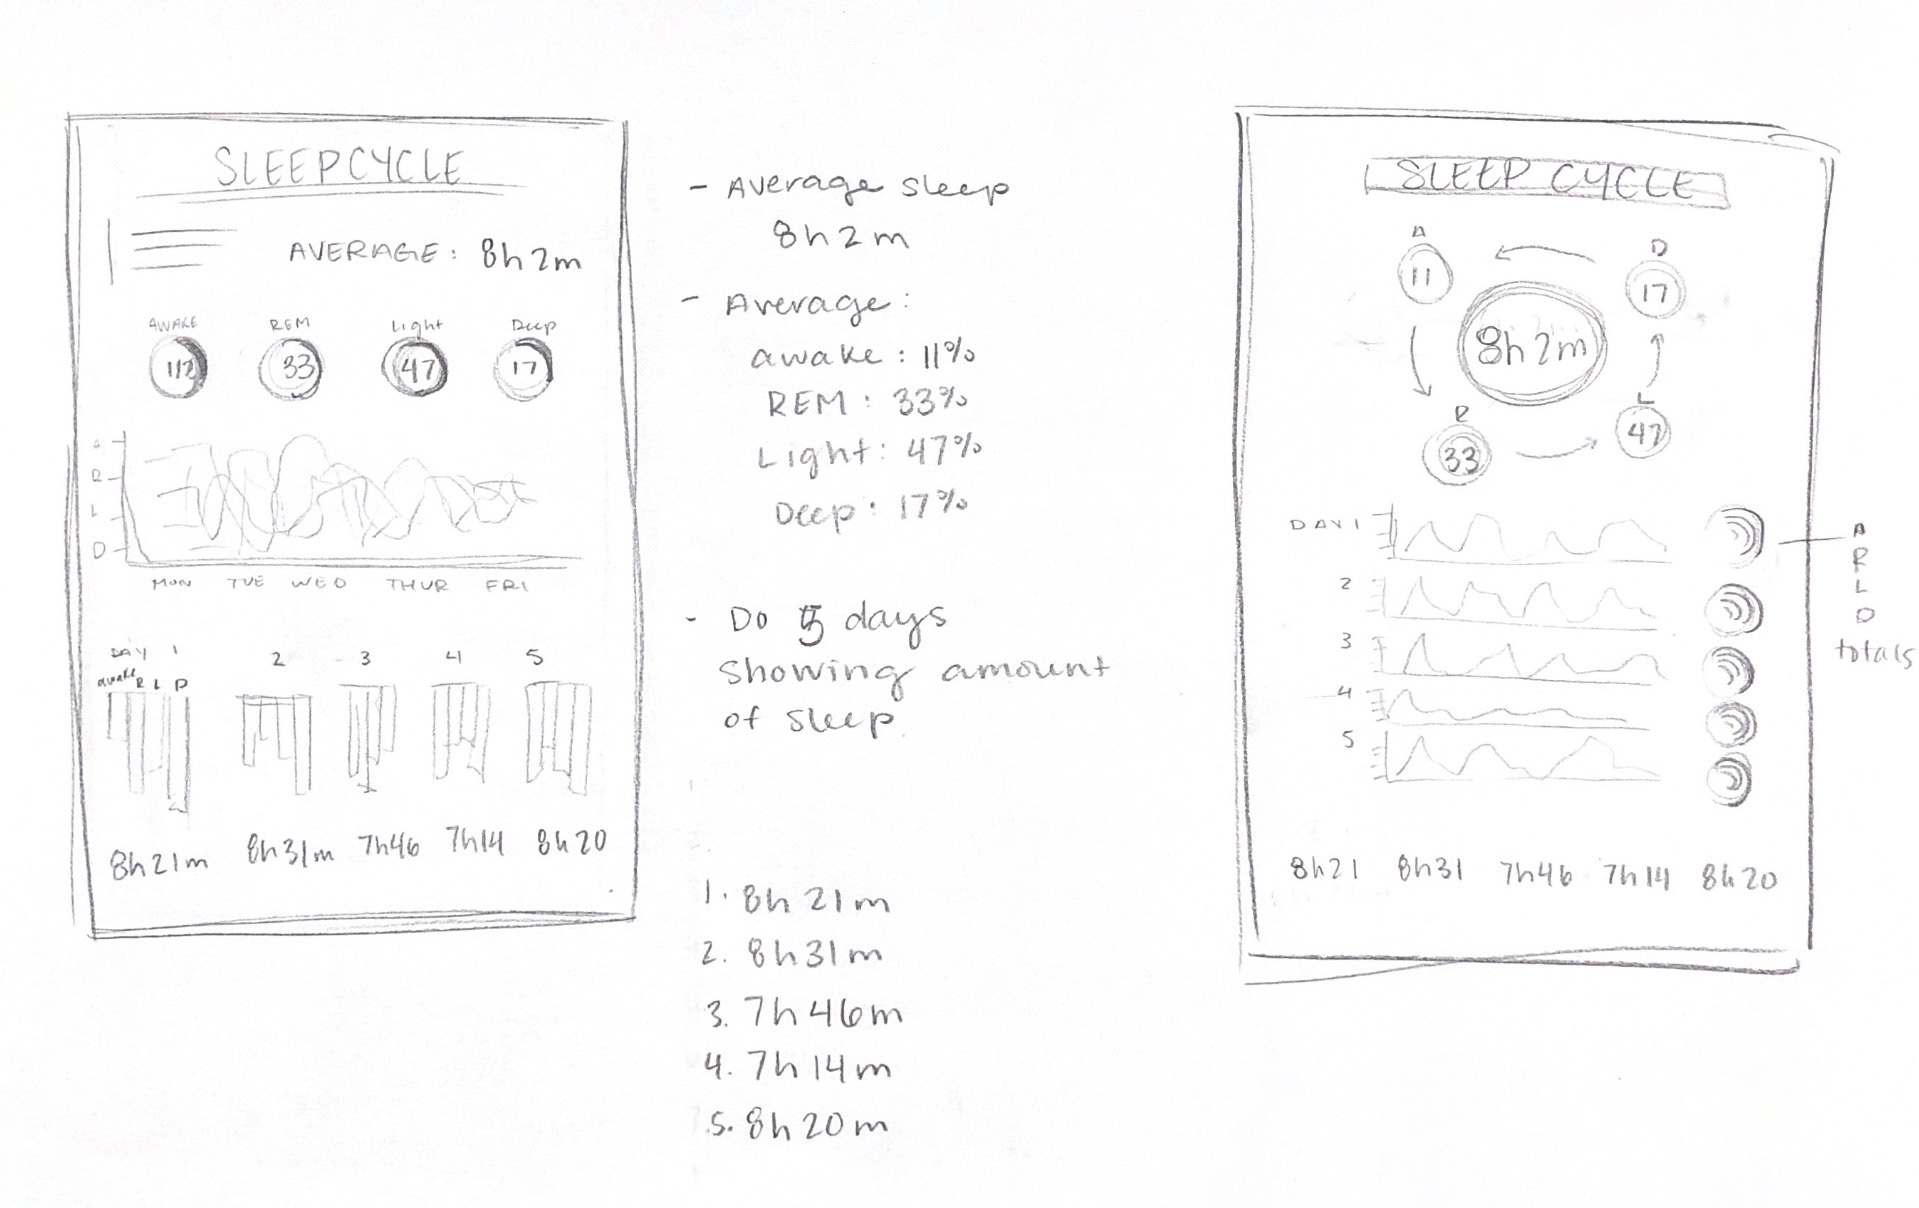 SLEEPCYCLE
AVERAGE: 8h 2m
AWAKE REM Light Deep
33 47 17
R
L
D
MON TUE WED THUR FRI
DAY 1 2 3 4 5
awake R L D
8h21m 8h31m 7h46 7h14 8h20
- Average sleep
8h2m
- Average:
awake: 11%
REM: 33%
Light: 47%
Deep: 17%
- Do 5 days
showing amount
of sleep.
1. 8h 21m
2. 8h 31m
3. 7h 46m
4. 7h 14m
5. 8h 20m
SLEEP CYCLE
A D
11 17
8h 2m
R L
33 47
DAY 1
2
3
4
5
A
R
L
D
totals
8h21 8h31 7h46 7h14 8h20